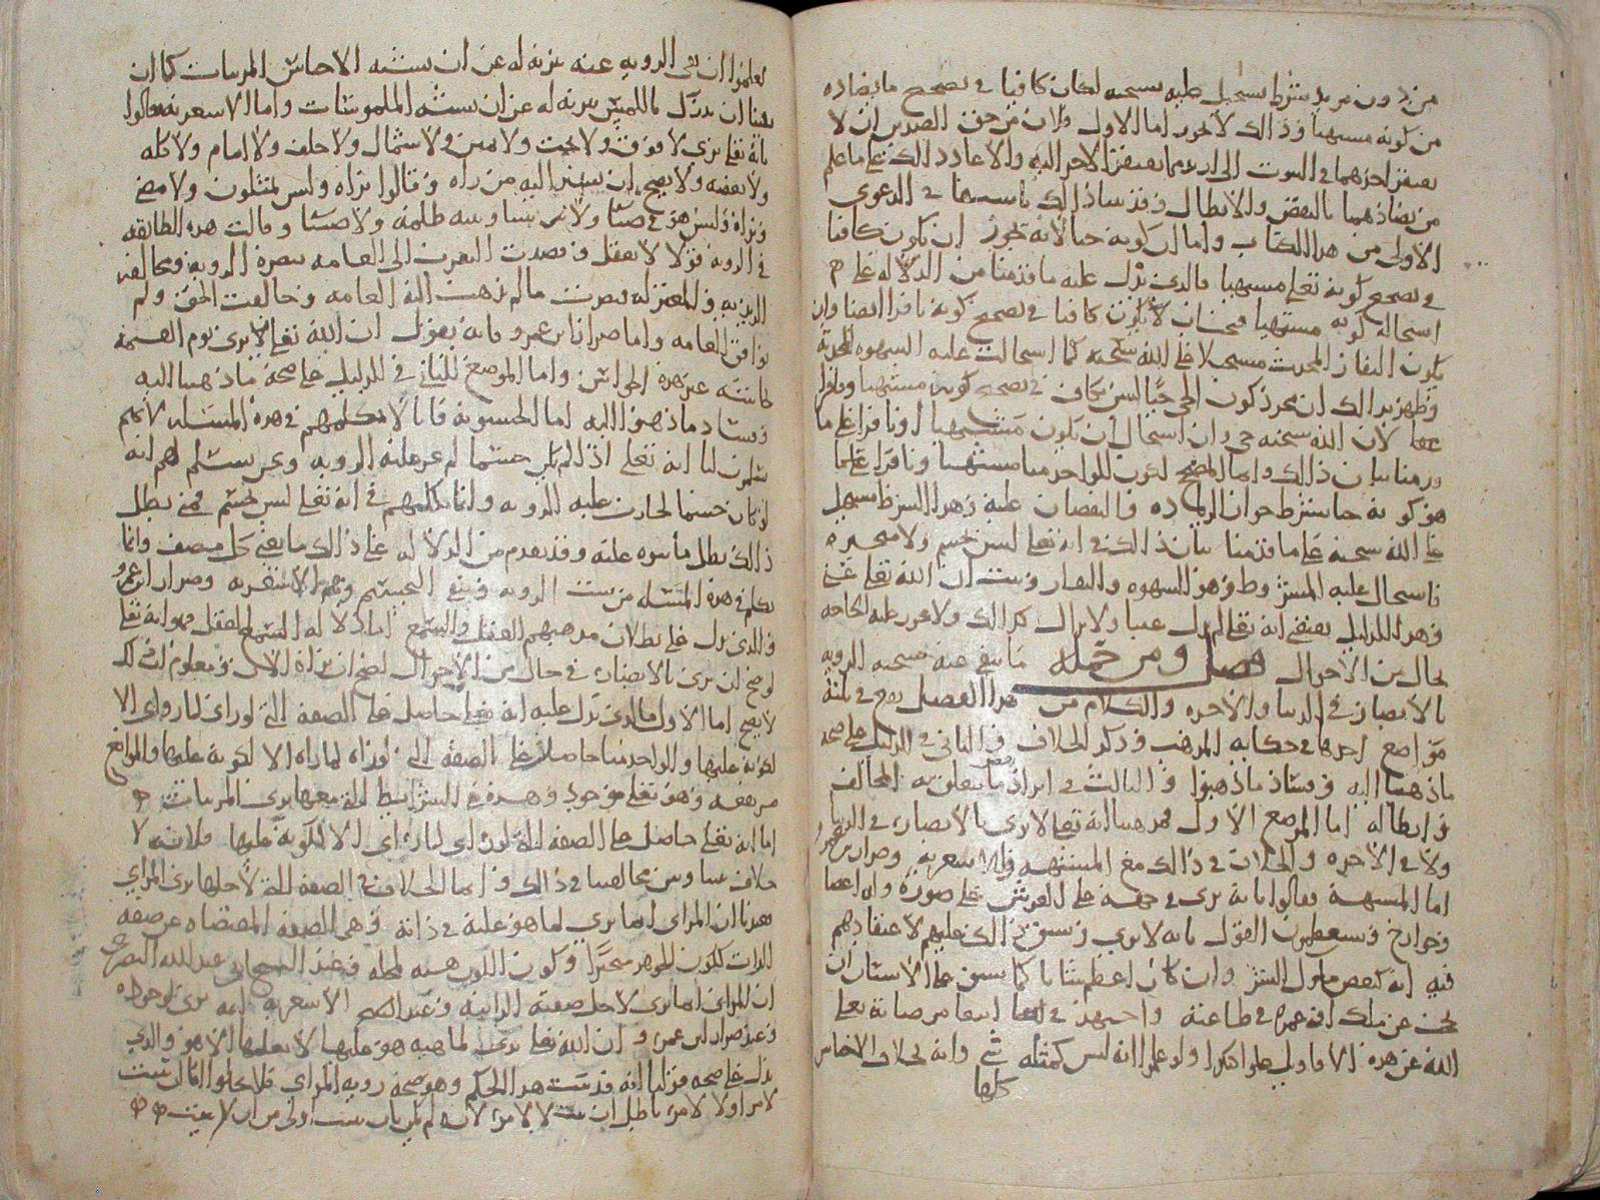 من دون من يد شرط يستحيل عليه سبحنه لكان كافيا في تصحيح ما يضاده
من كونه مشتهيا وذالك لا يجوز اما الاول فلان من حق الضدين ان لا
يفتقر احدهما في الثبوت الى ازيد مما يفتقر الاخر اليه والا عاد ذالك على ما علم
من تضادهما بالنقض والابطال وقد بينا ذالك في الدعوى
الاولى من هذا الكتاب واما ان كونه حيا لانه يجوز ان يكون كافيا
في تصحيح كونه تعلى مشتهيا فالذي يدل عليه ما قدمنا من الدلالة على
استحالة كونه مشتهيا فحينئذ لا يكون كافيا في تصحيح كونه نافرا ايضا وان
يكون النفار المحدث مستحيلا على الله سبحنه كما استحالت عليه الشهوة المحدثة
وظهر بذالك ان مجرد كون الحي حيا ليس بكاف في تصحيح كونه مشتهيا ونافرا
لان الله سبحنه حي وان استحال ان يكون مشتهيا او نافرا على ما
قدمنا بيان ذالك وانما المصحح لكون الواحد منا مشتهيا ونافرا انما
هو كونه حيا بشرط جواز الزيادة والنقصان عليه وهذا الشرط مستحيل
على الله سبحنه على ما قدمنا بيان ذلك في انه تعلى ليس بجسم ولا متحيز
فاستحال عليه المشروط وهو الشهوة والنفار وثبت ان الله تعلى غني
وهذا الدليل يقتضي انه تعلى لم يزل غنيا ولا يزال كذالك ولا تجوز عليه الحاجة
بحال من الاحوال فصل ومن جملة ما ينفى عنه سبحنه الروية
بالابصار في الدنيا والاخرة والكلام من هذا الفصل يقع في ثلثة
مواضع احدها في حكاية المذهب وذكر الخلاف والثاني في الدليل على صحة
ما ذهبنا اليه وفساد ما ذهبوا والثالث في ايراد ما يتعلق به المخالف
وابطاله اما الموضع الاول فمذهبنا انه تعلى لا يرى بالابصار في الدنيا
ولا في الاخرة والخلاف في ذالك مع المشبهة والاشعرية وضرار بن عمرو
اما المشبهة فقالوا بانه يرى في جهة على العرش على صورة وان اعضا
وجوارح ويستعظمون القول بانه لا يرى ويشق ذالك عليهم لاعتقادهم
فيه انه كبعض ملوك البشر وان كان اعظم شانا كما يشق على الانسان ان
يحث عن ملك افنى عمره في طاعته واجتهد في مرضاته تعلى
الله عن هذه الاقاويل علوا كبيرا ولو علموا انه ليس كمثله شي وانه بخلاف الاجناس
كلها
لعلموا ان نفي الروية عنه تنزيه له عن ان يشبه الاجناس المرئيات كما ان
نفينا ان يدرك باللمس تنزيه له عن ان يشبه الملموسات واما الاشعرية فقالوا
بانه تعلى يرى لا فوق ولا تحت ولا يمين ولا شمال ولا خلف ولا امام ولا كله
ولا بعضه ولا يصح ان يشير اليه من راه وقالوا نراه وليس بمتلون ولا مضي
ونراه وليس هو في ضيا ولا بيننا وبينه ظلمة ولا ضيا وقالت هذه الطائفة
في الروية قولا لا يعقل وقصدت التقرب الى العامة بنصرة الروية ومخالفة
الزيدية والمعتزلة فنصرت ما لم تذهب اليه العامة وخالفت الحق ولم
توافق العامة واما ضرار بن عمرو فانه يقول ان الله تعلى يرى يوم القيمة
بحاسة غير هذه الحواس واما الموضع الثاني في الدليل على صحة ما ذهبنا اليه
وفساد ما ذهبوا اليه اما الحشوية فانا لا نكلمهم في هذه المسئلة لانهم
يسلمون لنا انه تعلى اذا لم يكن جسما لم تجز عليه الروية ونحن نسلم لهم انه
لو كان جسما لجازت عليه الروية وانما نكلمهم في انه تعلى ليس بجسم فمتى بطل
ذالك بطل ما بنوه عليه وقد تقدم من الدلالة على ذالك ما يقنع كل منصف وانما
نكلم في هذه المسئلة من يثبت الروية وينفي التجسيم وهم الاشعرية وضرار بن عمرو
والذي يدل على بطلان مذهبهم العقل والسمع اما دلالة العقل فهو انه تعلى
لو صح ان يرى بالابصار في حال من الاحوال لصح ان نراه الان ومعلوم ان ذلك
لا يصح اما الاول فالذي يدل عليه انه تعلى حاصل على الصفة التي لو راي لما راي الا
لكونه عليها والواحد منا حاصل على الصفة التي لو راه لما راه الا لكونه عليها والموانع
مرتفعة وهو تعلى موجود وهذه هي الشرائط التي معها يرى المرئيات
اما انه تعلى حاصل على الصفة التي لو راي لما راي الا لكونه عليها فلانه لا
خلاف بيننا وبين مخالفينا في ذالك وانما الخلاف في الصفة التي لاجلها يرى المراي
فعندنا ان المراي انما يرى لما هو عليه في ذاته وهي الصفة المقتضاة عن صفة
الذات ككون الجوهر متحيزا وكون اللون هيئة لمحله وعند الشيخ ابي عبدالله البصري
ان المراي انما يرى لاجل صفته الذاتية وعند الاشعرية انه يرى لوجوده
وعند ضرار ابن عمرو ان الله تعلى يرى لماهية هو عليها لا يعلمها الا هو والذي
يدل على صحة قولنا انه قد ثبت هذا الحكم وهو صحة روية المراي فلا يخلو اما ان يثبت
لامر او لا لامر باطل ان يثبت لا لامر لانه لم يكن بان يثبت اولى من ان لا يثبت